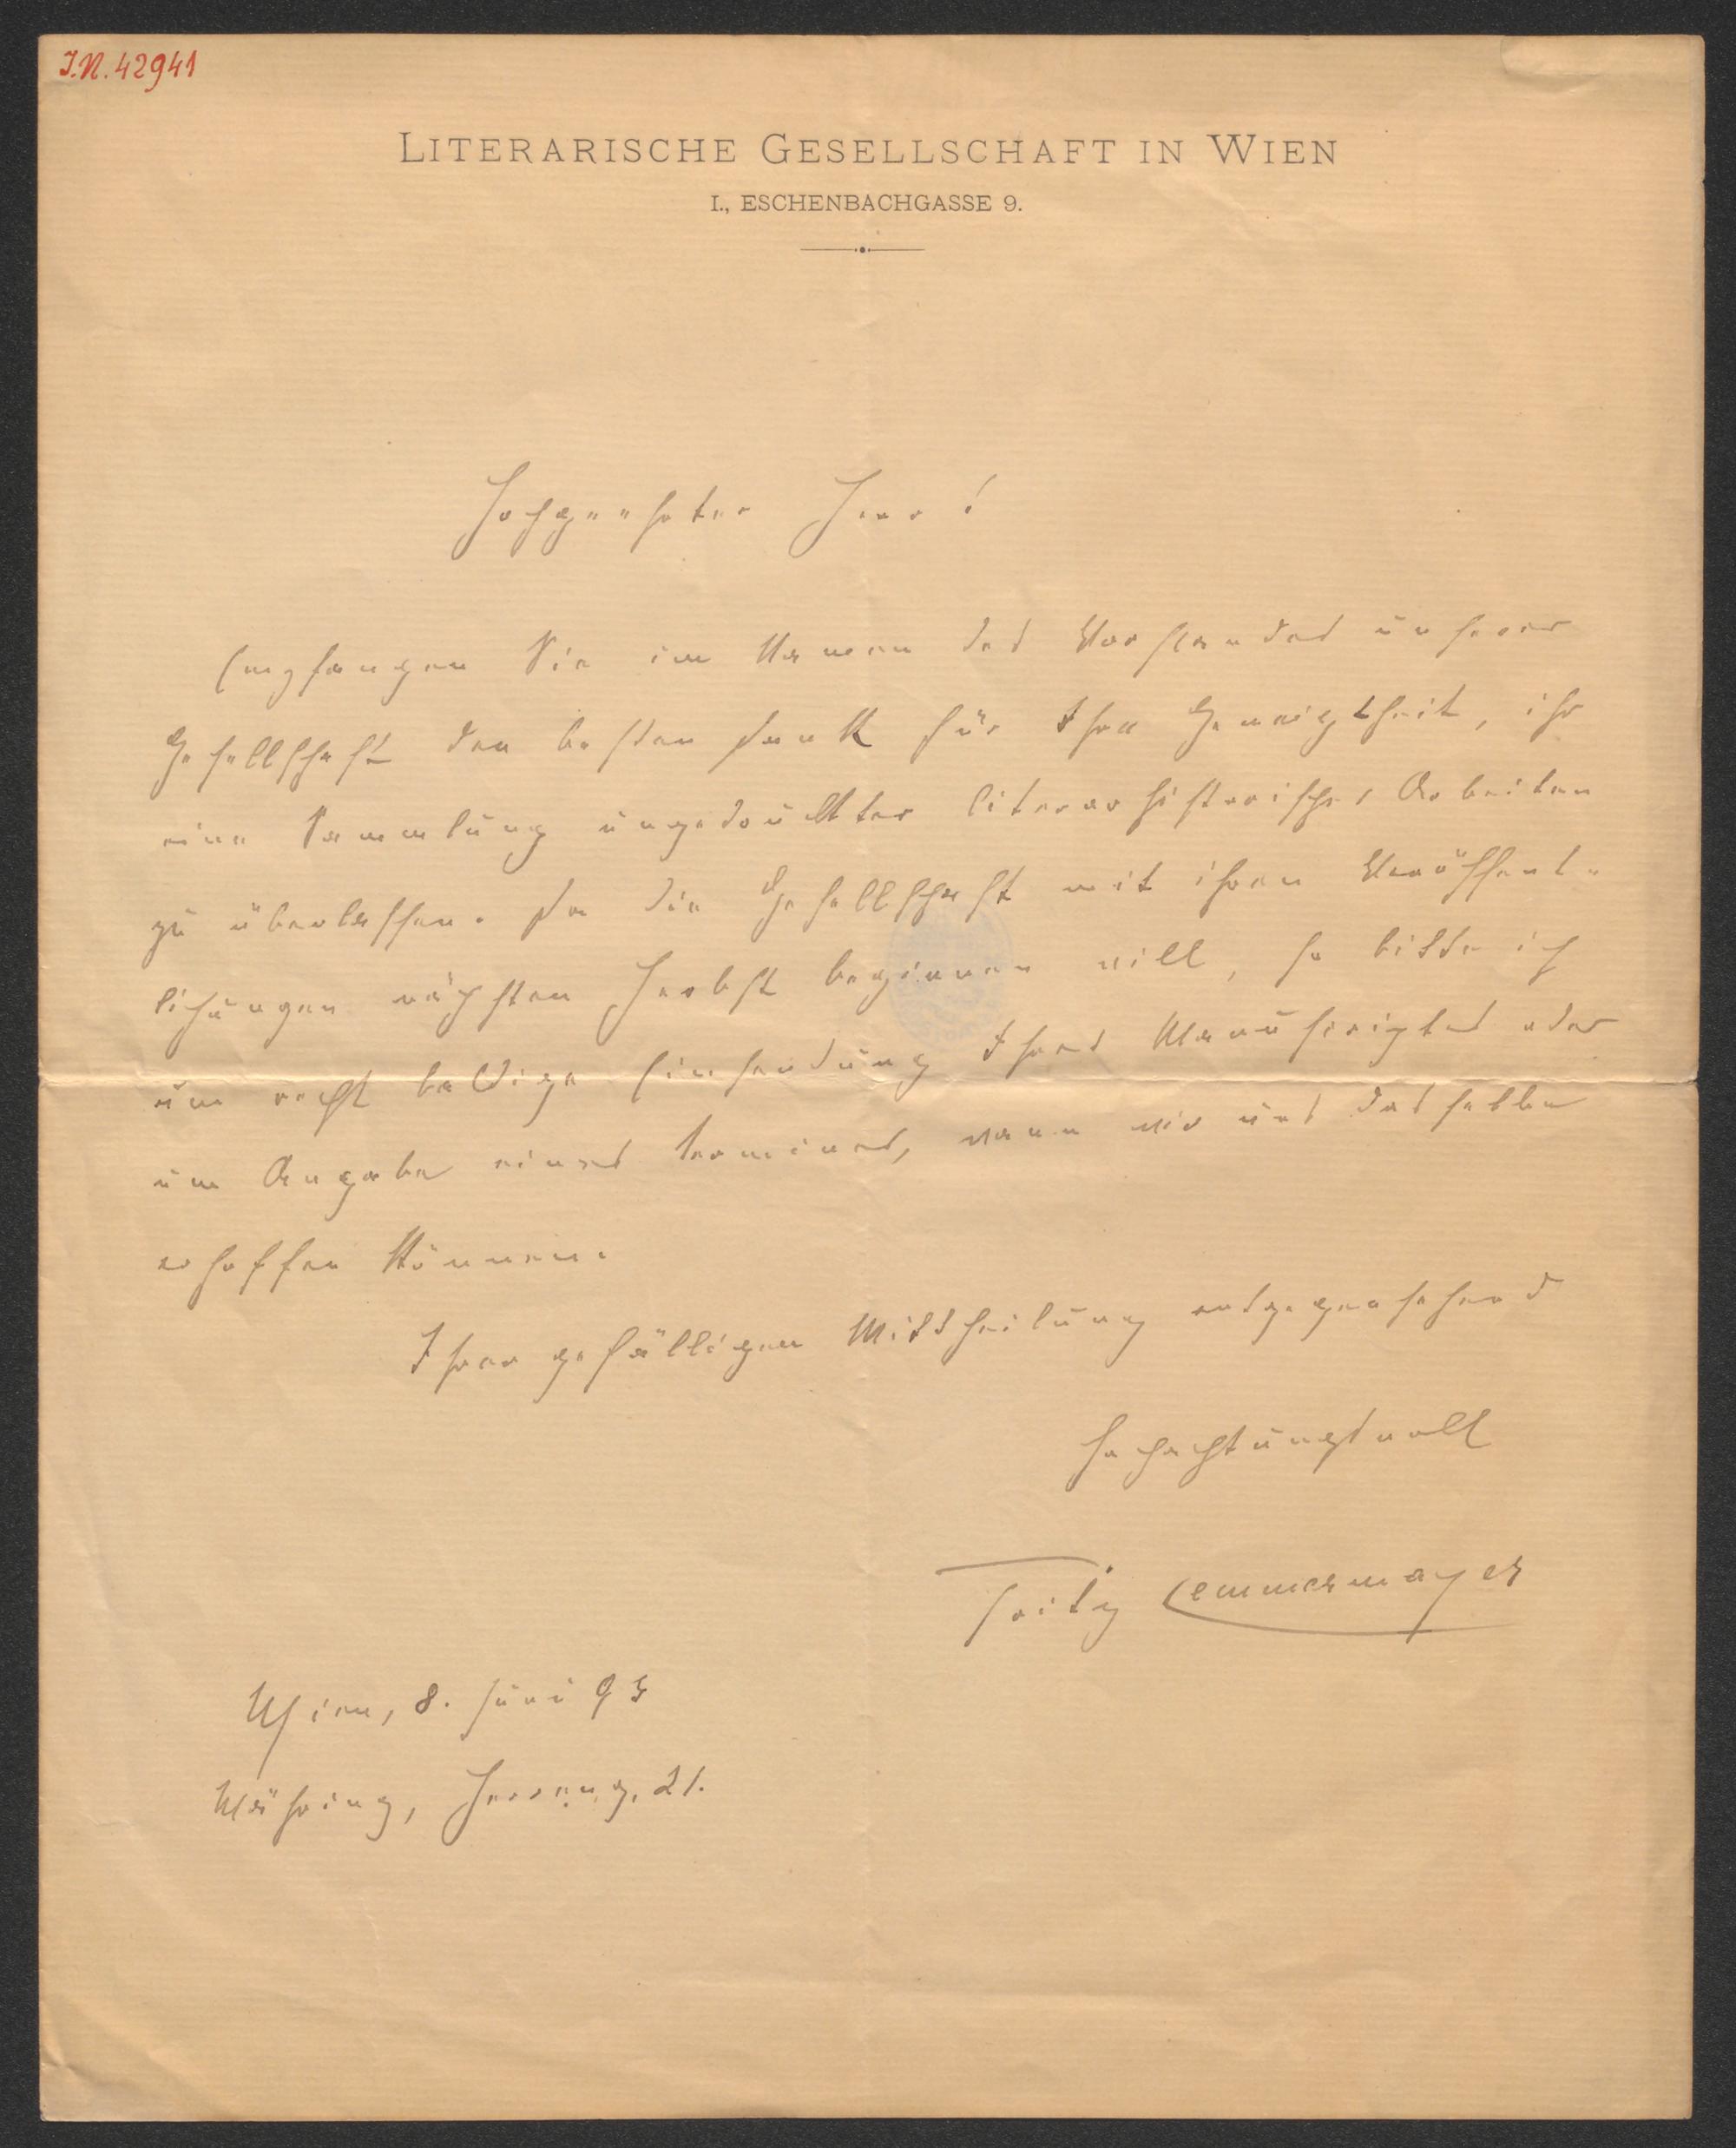 I.N. 42941
LITERARISCHE GESELLSCHAFT IN WIEN
I., ESCHENBACHGASSE 9.
Hochgeehrter Herr!
Empfangen Sie im Namen des Vorstandes unserer
Gesellschaft den besten Dank für Ihre Geneigtheit, ihr
eine Sammlung ungedruckter literarhistorischer Arbeiten
zu überlassen. Da die Gesellschaft mit ihren Veröffent-
lichungen nächsten Herbst beginnen will, so bitte ich
um recht baldige Einsendung Ihres Manuscriptes oder
um Angabe eines Termines, wann wir uns dasselbe
erhoffen können.
Ihrer gefälligen Mittheilung entgegensehend
hochachtungsvoll
Fritz Lemmermayer
Wien, 8. Juni 93
Währing, Herreng. 21.